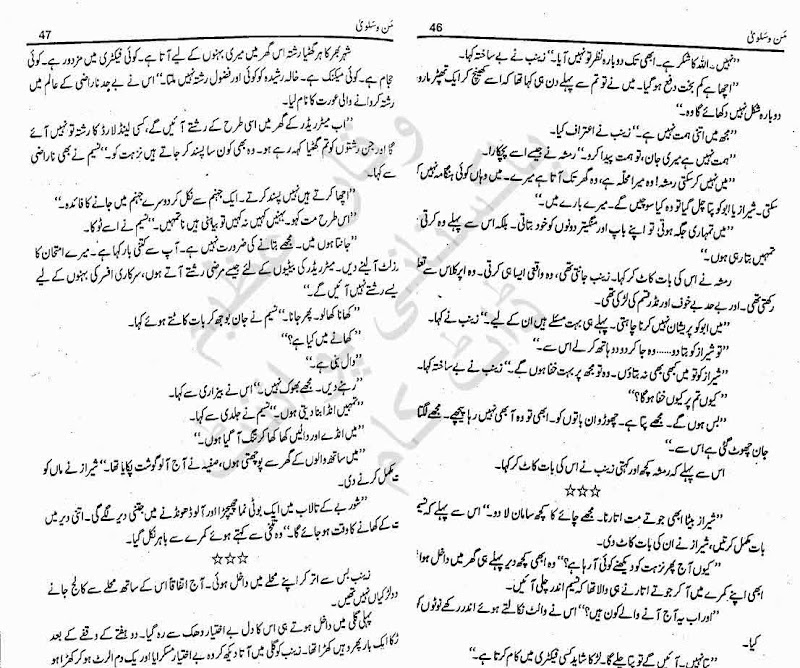 46
من وسلویٰ
”نہیں۔ اللہ کا شکر ہے۔ ابھی تک دوبارہ نظر تو نہیں آیا۔“ زینب نے بے ساختہ کہا۔
”اچھا ہے کم بخت دفع ہو گیا۔ میں نے تو تم سے پہلے دن ہی کہا تھا کہ اسے کھینچ کر ایک تھپڑ مارو
دوبارہ شکل نہیں دکھائے گا وہ۔“
”مجھ میں اتنی ہمت نہیں ہے۔“ زینب نے اعتراف کیا۔
”ہمت نہیں ہے میری جان، تو ہمت پیدا کرو۔“ رمشہ نے جیسے اسے پچکارا۔
”میں نہیں کر سکتی رمشہ! وہ میرا محلہ ہے، وہ گھر تک آتا ہے میرے۔ میں وہاں کوئی ہنگامہ نہیں
سکتی۔ شیراز یا ابو کو پتا چل گیا تو وہ کیا سوچیں گے۔ میرے بارے میں۔“
”میں تمہاری جگہ ہوتی تو اپنے باپ اور منگیتر دونوں کو خود بتاتی۔ بلکہ اس سے پہلے وہ کرتی
تمہیں بتا رہی ہوں۔“
رمشہ نے اس کی بات کاٹ کر کہا۔ زینب جانتی تھی، وہ واقعی ایسا ہی کرتی۔ وہ اپر کلاس سے تعلق
رکھتی تھی۔ اور بے حد بے خوف اور نڈر قسم کی لڑکی تھی۔
”میں ابو کو پریشان نہیں کرنا چاہتی۔ پہلے ہی بہت مسئلے ہیں ان کے لیے۔“ زینب نے کہا۔
”تو شیراز کو بتا دو...... وہ جا کر دو دو ہاتھ کر لے اس سے۔“
”شیراز کو تو میں کبھی بھی نہ بتاؤں۔ وہ تو مجھ پر بہت خفا ہوں گے۔“ زینب نے بے ساختہ کہا۔
”کیوں تم پر کیوں خفا ہوگا؟“
”بس ہوں گے۔ مجھے پتا ہے۔ چھوڑو ان باتوں کو۔ ابھی تو وہ آ بھی نہیں رہا پیچھے۔ مجھے لگتا
جان چھوٹ گئی ہے اس سے۔“
اس سے پہلے کہ رمشہ کچھ اور کہتی زینب نے اس کی بات کاٹ کر کہا۔
☆☆☆
”شیراز بیٹا ابھی جوتے مت اتارنا۔ مجھے چائے کا کچھ سامان لا دو۔“ اس سے پہلے کہ نسیم
بات مکمل کرتیں، شیراز نے ان کی بات کاٹ دی۔
”کیوں آج پھر نزہت کو دیکھنے کوئی آ رہا ہے؟“ وہ ابھی کچھ دیر پہلے ہی گھر میں داخل ہوا
ابھی اپنے کمرے میں آ کر جوتے اتارنے ہی والا تھا کہ نسیم اندر چلی آئیں۔
”اور اب یہ آج آنے والے کون ہیں؟“ اس نے والٹ نکالتے ہوئے اندر رکھے نوٹوں کو
کیا۔
آئیں گے تو پتا چلے گا۔ لڑکا شاید کسی فیکٹری میں کام کرتا ہے۔“
47
من وسلویٰ
شہر بھر کا ہر گھٹیا رشتہ اس گھر میں میری بہنوں کے لیے آتا ہے۔ کوئی فیکٹری میں مزدور ہے۔ کوئی
حجام ہے۔ کوئی میکینک ہے۔ خالہ رشیدہ کو کوئی اور فضول رشتہ نہیں ملتا۔“ اس نے بے حد ناراضی کے عالم میں
رشتہ کروانے والی عورت کا نام لیا۔
”اب میٹر ریڈر کے گھر میں اسی طرح کے رشتے آئیں گے، کسی لینڈ لارڈ کا رشتہ تو نہیں آئے
گا اور جن رشتوں کو تم گھٹیا کہہ رہے ہو۔ وہ بھی کون سا پسند کر جاتے ہیں نزہت کو۔“ نسیم نے بھی ناراضی
سے کہا۔
”اچھا کرتے ہیں نہیں پسند کرتے۔ ایک جہنم سے نکل کر دوسرے جہنم میں جانے کا فائدہ۔“
”اس طرح مت کہو۔ بہنیں کہیں نہ کہیں تو بیاہنی ہیں نا تمہیں۔“ نسیم نے اسے ٹوکا۔
”جانتا ہوں میں۔ مجھے بتانے کی ضرورت نہیں ہے۔ آپ سے کتنی بار کہا ہے۔ میرے امتحان کا
رزلٹ آ لینے دیں۔ میٹر ریڈر کی بیٹیوں کے لئے جیسے مرضی رشتے آتے ہوں، سرکاری افسر کی بہنوں کے لیے
ایسے رشتے نہیں آئیں گے۔“
”کھانا کھا لو۔ پھر جانا۔“ نسیم نے جان بوجھ کر بات کاٹتے ہوئے کہا۔
”کھانے میں کیا ہے؟“
”دال بنی ہے۔“
”رہنے دیں۔ مجھے بھوک نہیں۔“ اس نے بیزاری سے کہا۔
”تمہیں انڈا بنا دیتی ہوں۔“ نسیم نے جلدی سے کہا۔
”میں انڈے اور دالیں کھا کھا کر تنگ آ گیا ہوں۔“
”میں ساتھ والوں کے گھر سے پوچھتی ہوں، صفیہ نے آج آلو گوشت پکایا تھا۔“ شیراز نے ماں کو
بات مکمل کرنے دی۔
”شوربے کے تالاب میں ایک بوٹی نما چھیچھڑا اور آلو ڈھونڈنے میں جتنی دیر لگے گی۔ اتنی دیر میں
رات کے کھانے کا وقت ہو جائے گا۔“ وہ تلخی سے کہتے ہوئے کمرے سے باہر نکل گیا۔
☆☆☆
زینب بس سے اتر کر اپنے محلے میں داخل ہوئی۔ آج اتفاقاً اس کے ساتھ محلے سے کالج جانے
دو لڑکیاں نہیں تھیں۔
پہلی گلی میں داخل ہوتے ہی اس کا دل بے اختیار دھک سے رہ گیا۔ دو ہفتے کے وقفے کے بعد
لڑکا ایک بار پھر وہیں کھڑا تھا۔ زینب کو گلی میں آتا دیکھ کر وہ بے اختیار مسکرایا اور یک دم الرٹ ہو کر کھڑا ہو